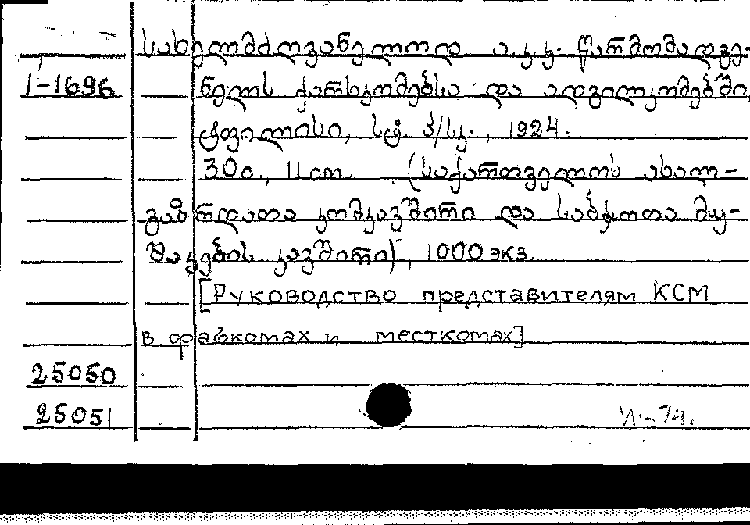 სახელმძღვანელო ა.კ.კ. წარმომადგე-
1-1696 ნელს ქარსკომებსა და ადგილკომებში,
ტფილისი, სტ. პ/სკ., 1924.
30გ., 11 cm (საქართველოს ახალ-
გაზრდათა კომკავშირი და საბჭოთა მუ-
შაკების კავშირი), 1000 экз.
[Руководство представителям КСМ
в фабкомах и месткомах]
25050
25051